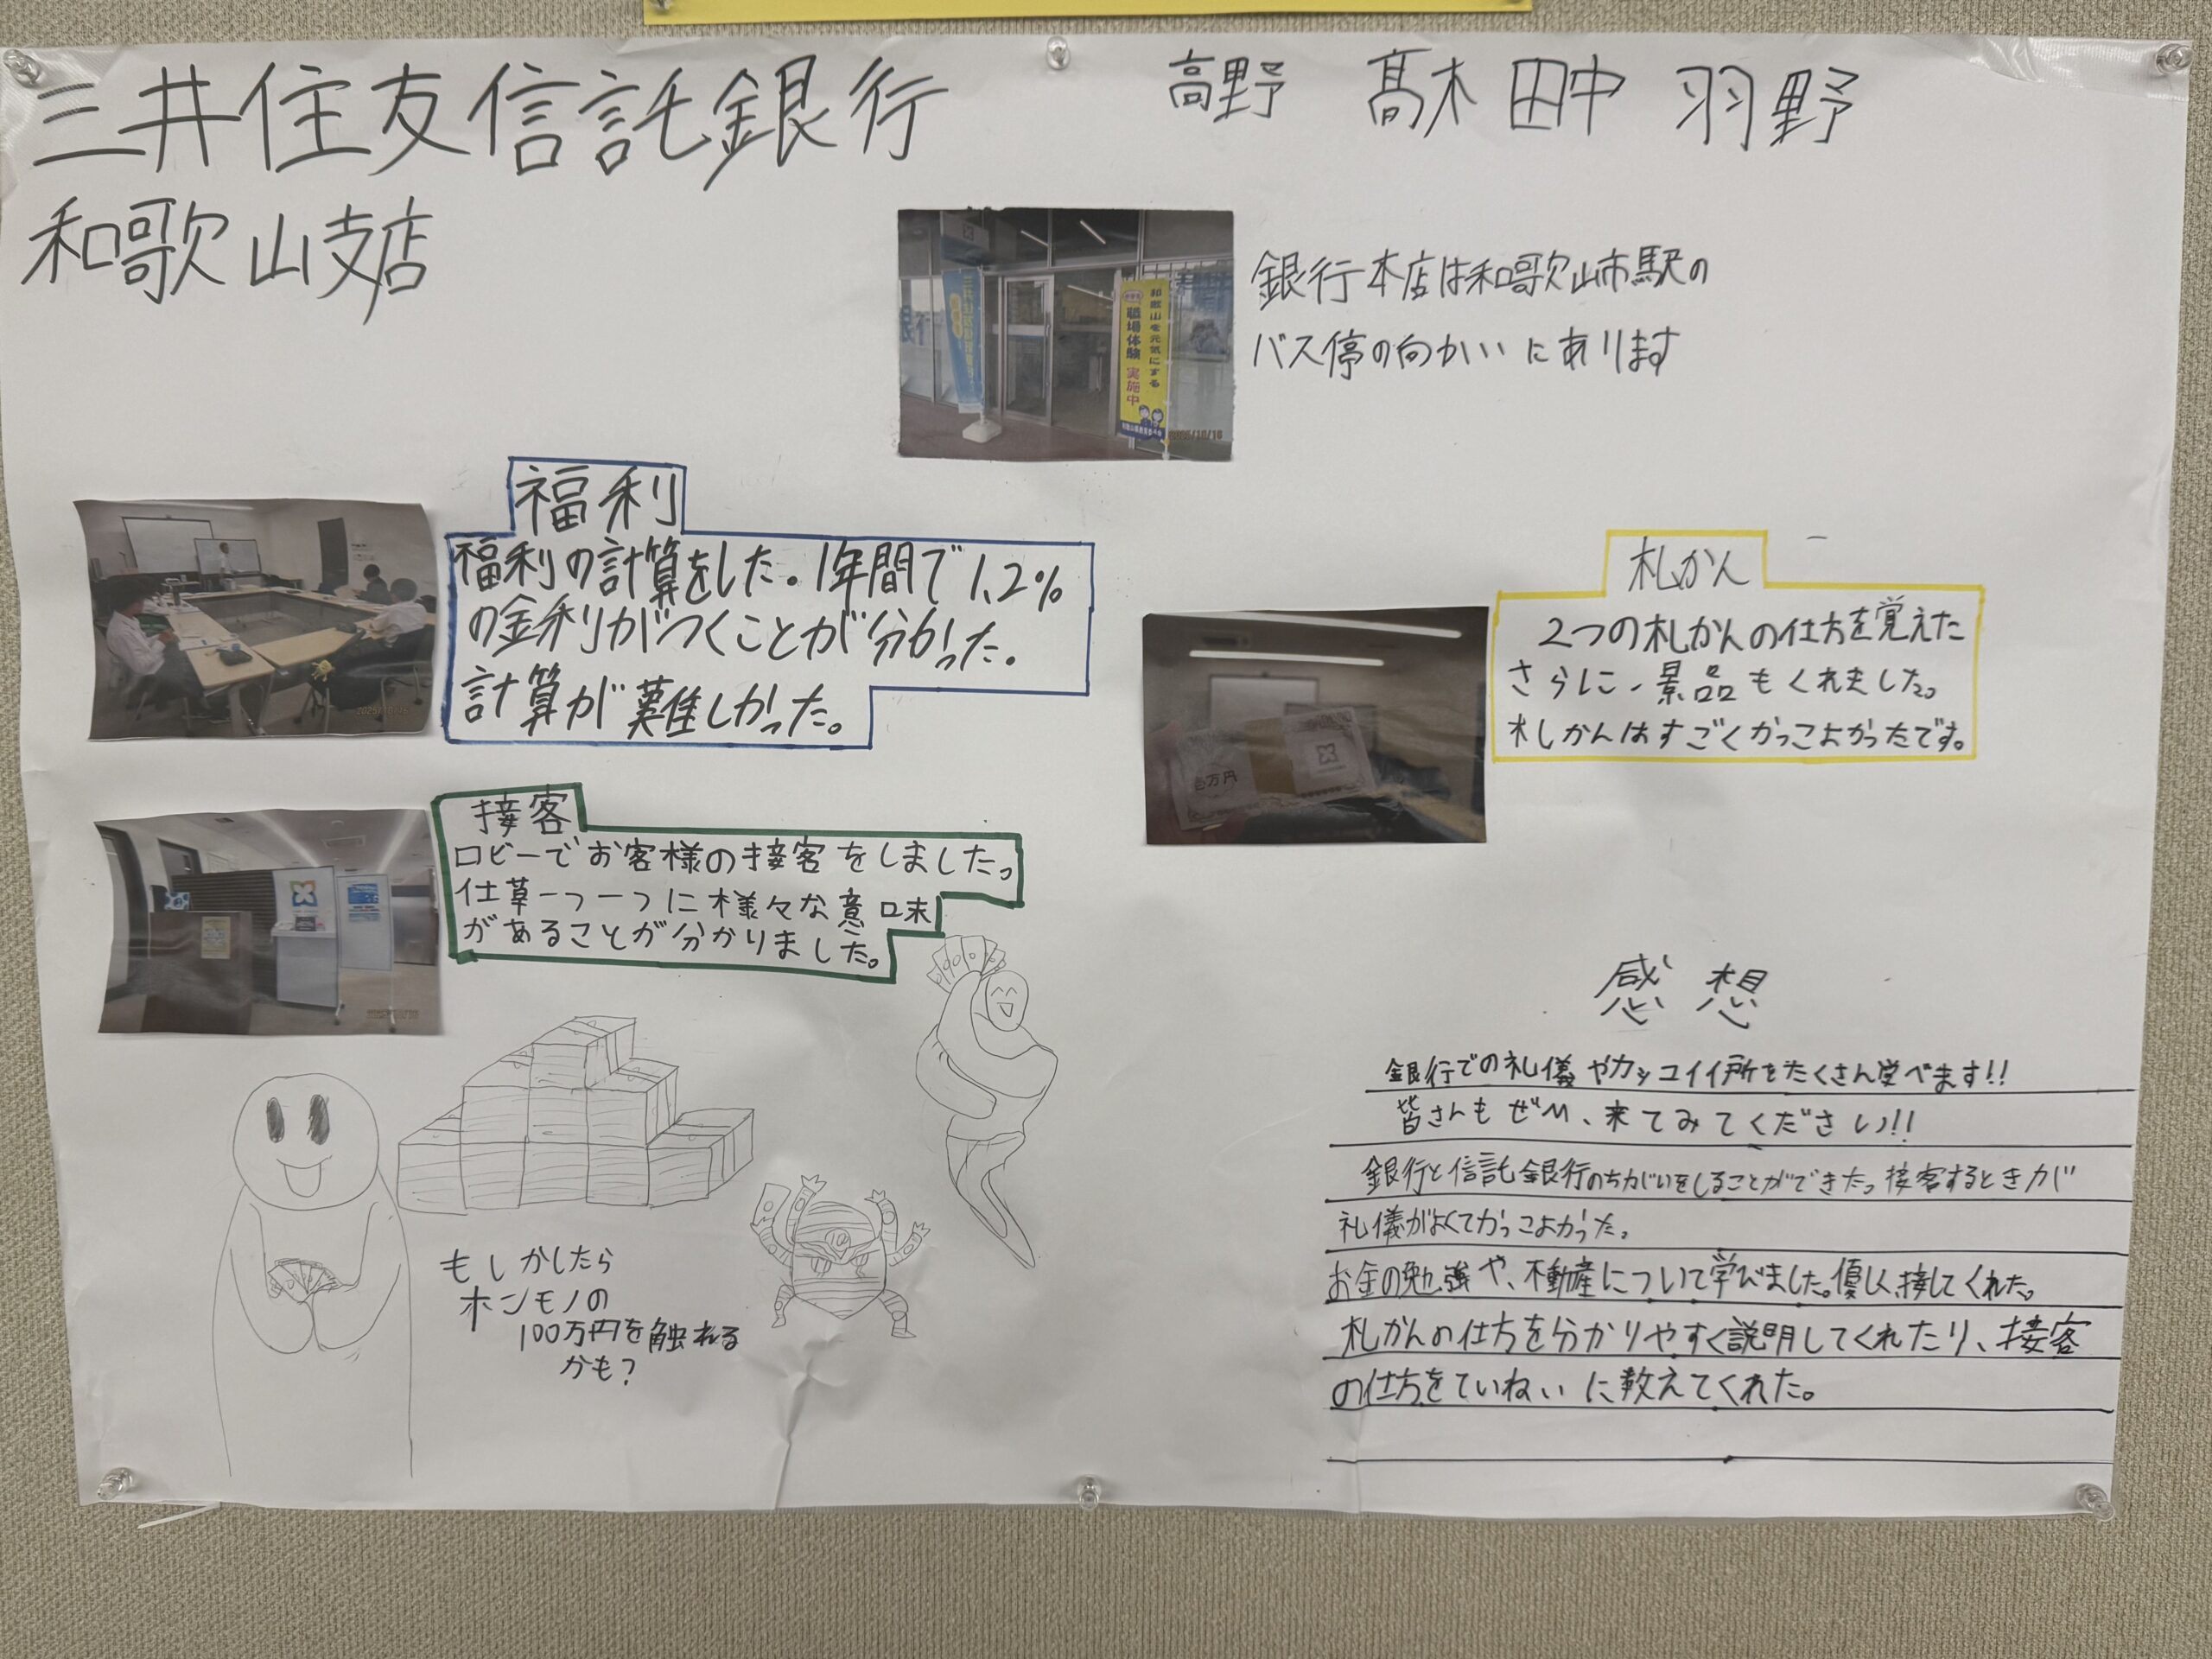 三井住友信託銀行
和歌山支店
高野 髙木 田中 羽野
銀行本店は和歌山市駅の
バス停の向かいにあります
和歌山を元気にする
職場体験 実施中
福利
福利の計算をした。1年間で1.2%
の金利がつくことが分かった。
計算が難しかった。
札かん
2つの札かんの仕方を覚えた
さらに、景品もくれました。
札かんはすごくかっこよかったです。
壱万円
接客
ロビーでお客様の接客をしました。
仕草一つ一つに様々な意味
があることが分かりました。
もしかしたら
ホンモノの
100万円を触れる
かも?
感想
銀行での礼儀やカッコイイ所をたくさん学べます!!
皆さんもぜひ、来てみてください!!
銀行と信託銀行のちがいをしることができた。接客するときが
礼儀がよくてかっこよかった。
お金の勉強や、不動産について学びました。優しく接してくれた。
札かんの仕方を分かりやすく説明してくれたり、接客
の仕方をていねいに教えてくれた。